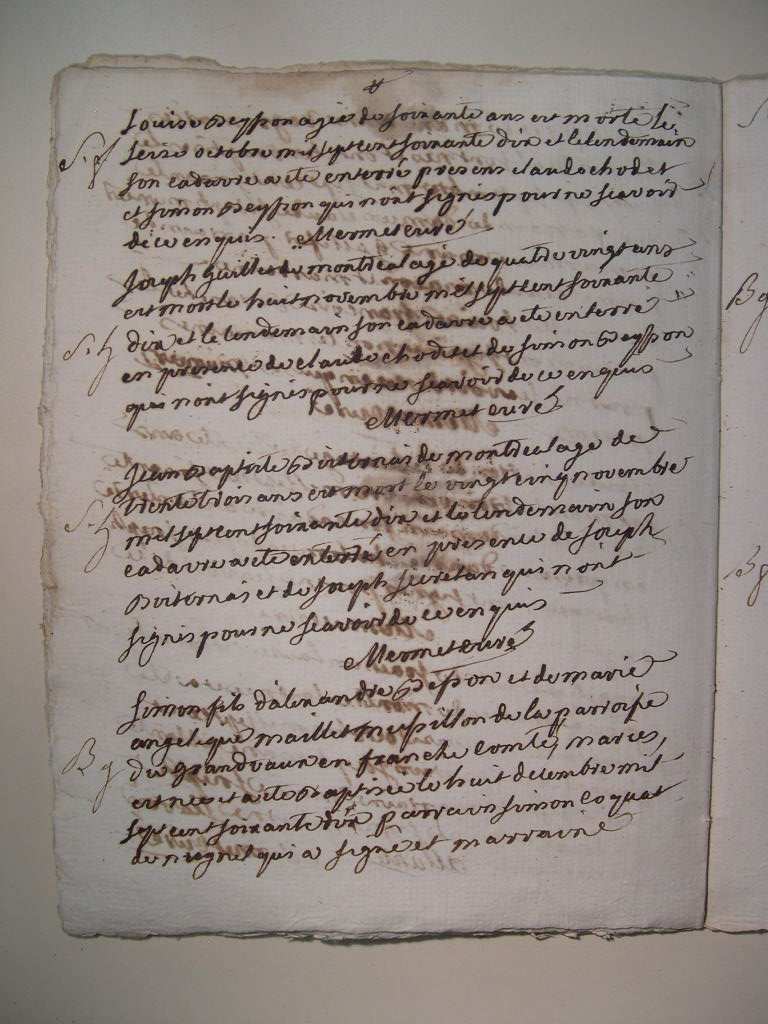 Louise Beysson agée de soixante ans est morte le
S. f
seize octobre mil sept cent soixante dix et le lendemain
son cadavre a eté enterré presens claude chodet
et simon Beysson qui nônt signés pour ne scavoir
de ce enquis. Mermet curé
Joseph Guillet de montreal agé de quatre vingt ans
est mort le huit novembre mil sept cent soixante
S. h
dix et le lendemain son cadavre a eté enterré
en presence de claude chodet et de simon Beysson
qui nônt signés pour ne scavoir de ce enquis
Mermet curé
Jean Baptiste de montreal agé de
trente trois ans est mort le vingt cinq novembre
S. h
mil sept cent soixante dix et le lendemain son
cadavre a eté enterré en presence de Joseph
et de Joseph secretan qui nônt
signés pour ne scavoir de ce enquis
Mermet curé
Simon fils d'alexandre et de marie
angelique maillet de la parroisse
B g
du grandvaux en franche comté, mariés,
est né et a eté Baptisé le huit decembre mil
sept cent soixante dix parrain simon coquat
de qui a signé et marraine
B g
B g